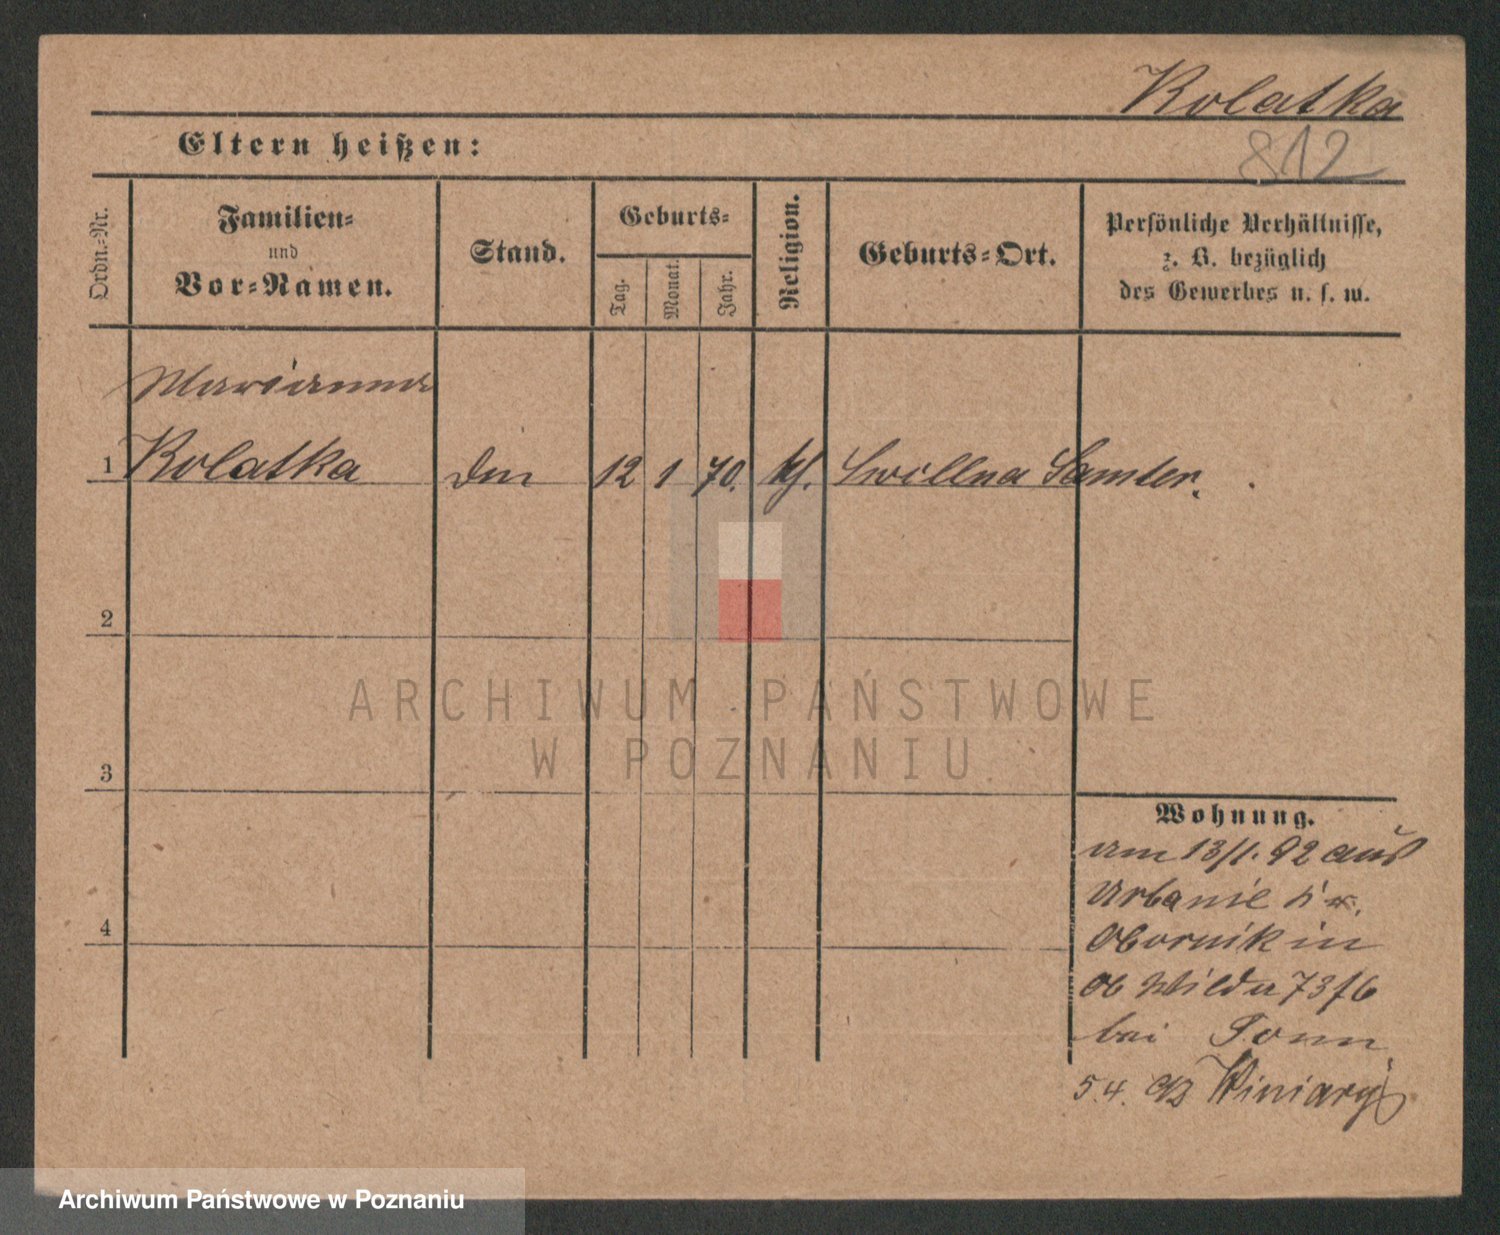 Kolatka
812
Eltern heißen:
Ordn.-Nr.
Familien-
und
Vor-Namen.
Stand.
Geburts-
Tag.
Monat.
Jahr.
Religion.
Geburts-Ort.
Persönliche Verhältnisse,
z. B. bezüglich
des Gewerbes u. s. w.
Marianna
1 Kolatka 12 1 70. Samter.
2
3
4
Wohnung.
am 13/1. 92 aus
Urbanie
Obornik in
Ob Wilda 73/6
bei
5.4. Winiary
ARCHIWUM PAŃSTWOWE
W POZNANIU
Archiwum Państwowe w Poznaniu